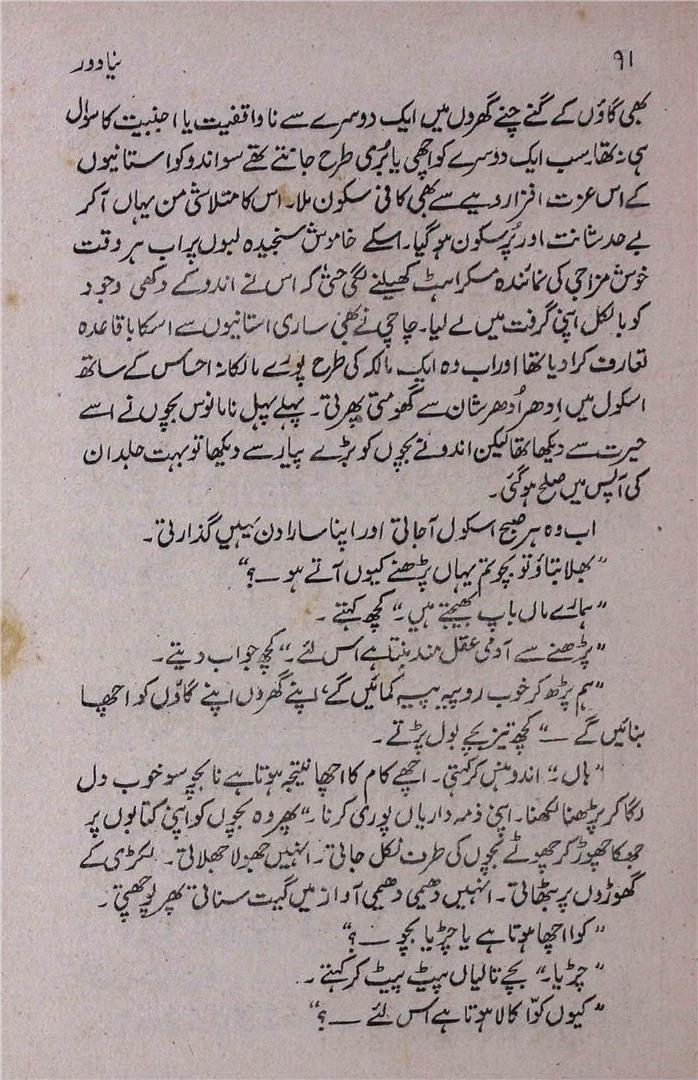 ۹۱ نیا دور
بھی گاؤں کے گنے چنے گھروں میں ایک دوسرے سے ناواقفیت یا اجنبیت کا سوال
ہی نہ تھا۔ سب ایک دوسرے کو اچھی یا بُری طرح جانتے تھے سو اندو کو استانیوں
کے اس عزت افزا رویے سے بھی کافی سکون ملا۔ اس کا متلاشی من یہاں آ کر
بے حد شانت اور پُر سکون ہو گیا۔ اسکے خاموش سنجیدہ لبوں پر اب ہر وقت
خوش مزاجی کی نمائندہ مسکراہٹ کھیلنے لگی حتیٰ کہ اس نے اندو کے دکھی وجود
کو بالکل اپنی گرفت میں لے لیا۔ چاچی نے بھی ساری استانیوں سے اسکا باقاعدہ
تعارف کرا دیا تھا اور اب وہ ایک مالکہ کی طرح پورے مالکانہ احساس کے ساتھ
اسکول میں اِدھر اُدھر شان سے گھومتی پھرتی۔ پہلے پہل نامانوس بچوں نے اسے
حیرت سے دیکھا تھا لیکن اندو نے بچوں کو بڑے پیار سے دیکھا تو بہت جلد ان
کی آپس میں صلح ہو گئی۔
اب وہ ہر صبح اسکول آ جاتی اور اپنا سارا دن یہیں گذارتی۔
"بھلا بتاؤ تو بچو تم یہاں پڑھنے کیوں آتے ہو ــ؟"
"ہمارے ماں باپ بھیجتے ہیں۔" کچھ کہتے۔
"پڑھنے سے آدمی عقل مند بنتا ہے اس لئے۔" کچھ جواب دیتے۔
"ہم پڑھ کر خوب روپیہ پیسہ کمائیں گے، اپنے گھروں اپنے گاؤں کو اچھا
بنائیں گے ــ" کچھ تیز بچے بول پڑتے۔
"ہاں۔" اندو ہنس کر کہتی۔ اچھے کام کا اچھا نتیجہ ہوتا ہے نا بچو سو خوب دل
لگا کر پڑھنا لکھنا۔ اپنی ذمہ داریاں پوری کرنا۔" پھر وہ بچوں کو اپنی کتابوں پر
جھکا چھوڑ کر چھوٹے بچوں کی طرف نکل جاتی۔ انہیں جھولا جھلاتی۔ لکڑی کے
گھوڑوں پر بٹھاتی۔ انہیں دھیمی دھیمی آواز میں گیت سناتی پھر پوچھتی۔
"کوا اچھا ہوتا ہے یا چڑیا بچو ــ؟"
"چڑیا۔" بچے تالیاں پیٹ پیٹ کر کہتے۔
"کیوں کوّا کالا ہوتا ہے اس لئے ــ؟"